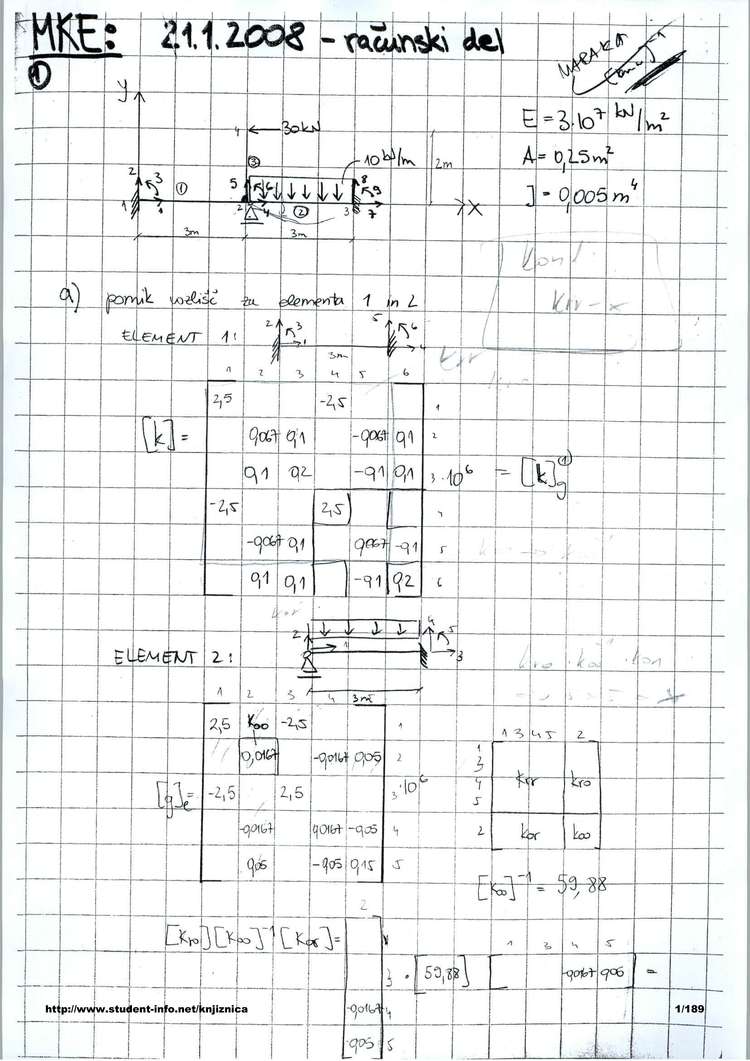 MKE: 21.1.2008 - računski del
①
y
4 30kN
E = 3·10⁷ kN/m²
③ 10 kN/m 2m
A = 0,25m²
2 3 ① 5 6 8 9
J = 0,005m⁴
1 1 2 4 ② 3 7 X
3m 3m
kond.
a) pomik vozlišč za elementa 1 in 2
ELEMENT 1: 2 3 1 5 6 4
3m
1 2 3 4 5 6
2,5 -2,5 1
[k] = 0,067 0,1 -0,067 0,1 2
0,1 0,2 -0,1 0,1 3 ·10⁶ = [k]g①
-2,5 2,5 4
-0,067 0,1 0,067 -0,1 5
0,1 0,1 -0,1 0,2 6
ELEMENT 2: 2 1 4 5 3
3m
1 2 3 4 5
2,5 koo -2,5 1
0,0167 -0,0167 0,05 2
[g]e = -2,5 2,5 3 ·10⁶
-0,0167 0,0167 -0,05 4
0,05 -0,05 0,15 5
1 3 4 5 2
1
3
4
5
krr kro
2 kor koo
[koo]⁻¹ = 59,88
2
[kro][koo]⁻¹[kor] = 1
3 · [59,88] 1 3 4 5
-0,067 0,05 =
-0,0167 4
0,05 5
http://www.student-info.net/knjiznica
1/189